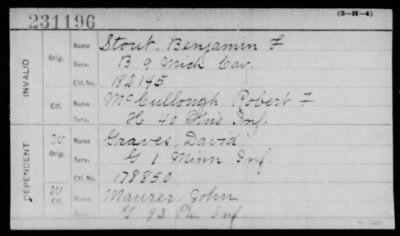 231196
(3-H-4)
INVALID
Orig.
Name Stout, Benjamin F
Serv. B 9 Mich Cav.
Ctf. No. 182145
Ctf.
Name McCullough Robert F
Serv. H 40 Ohio Inf.
DEPENDENT
W
Orig.
Name Graves, David
Serv. G 1 Minn Inf.
Ctf. No. 178850
W
Ctf.
Name Maurer, John
Serv. G 93 Pa Inf